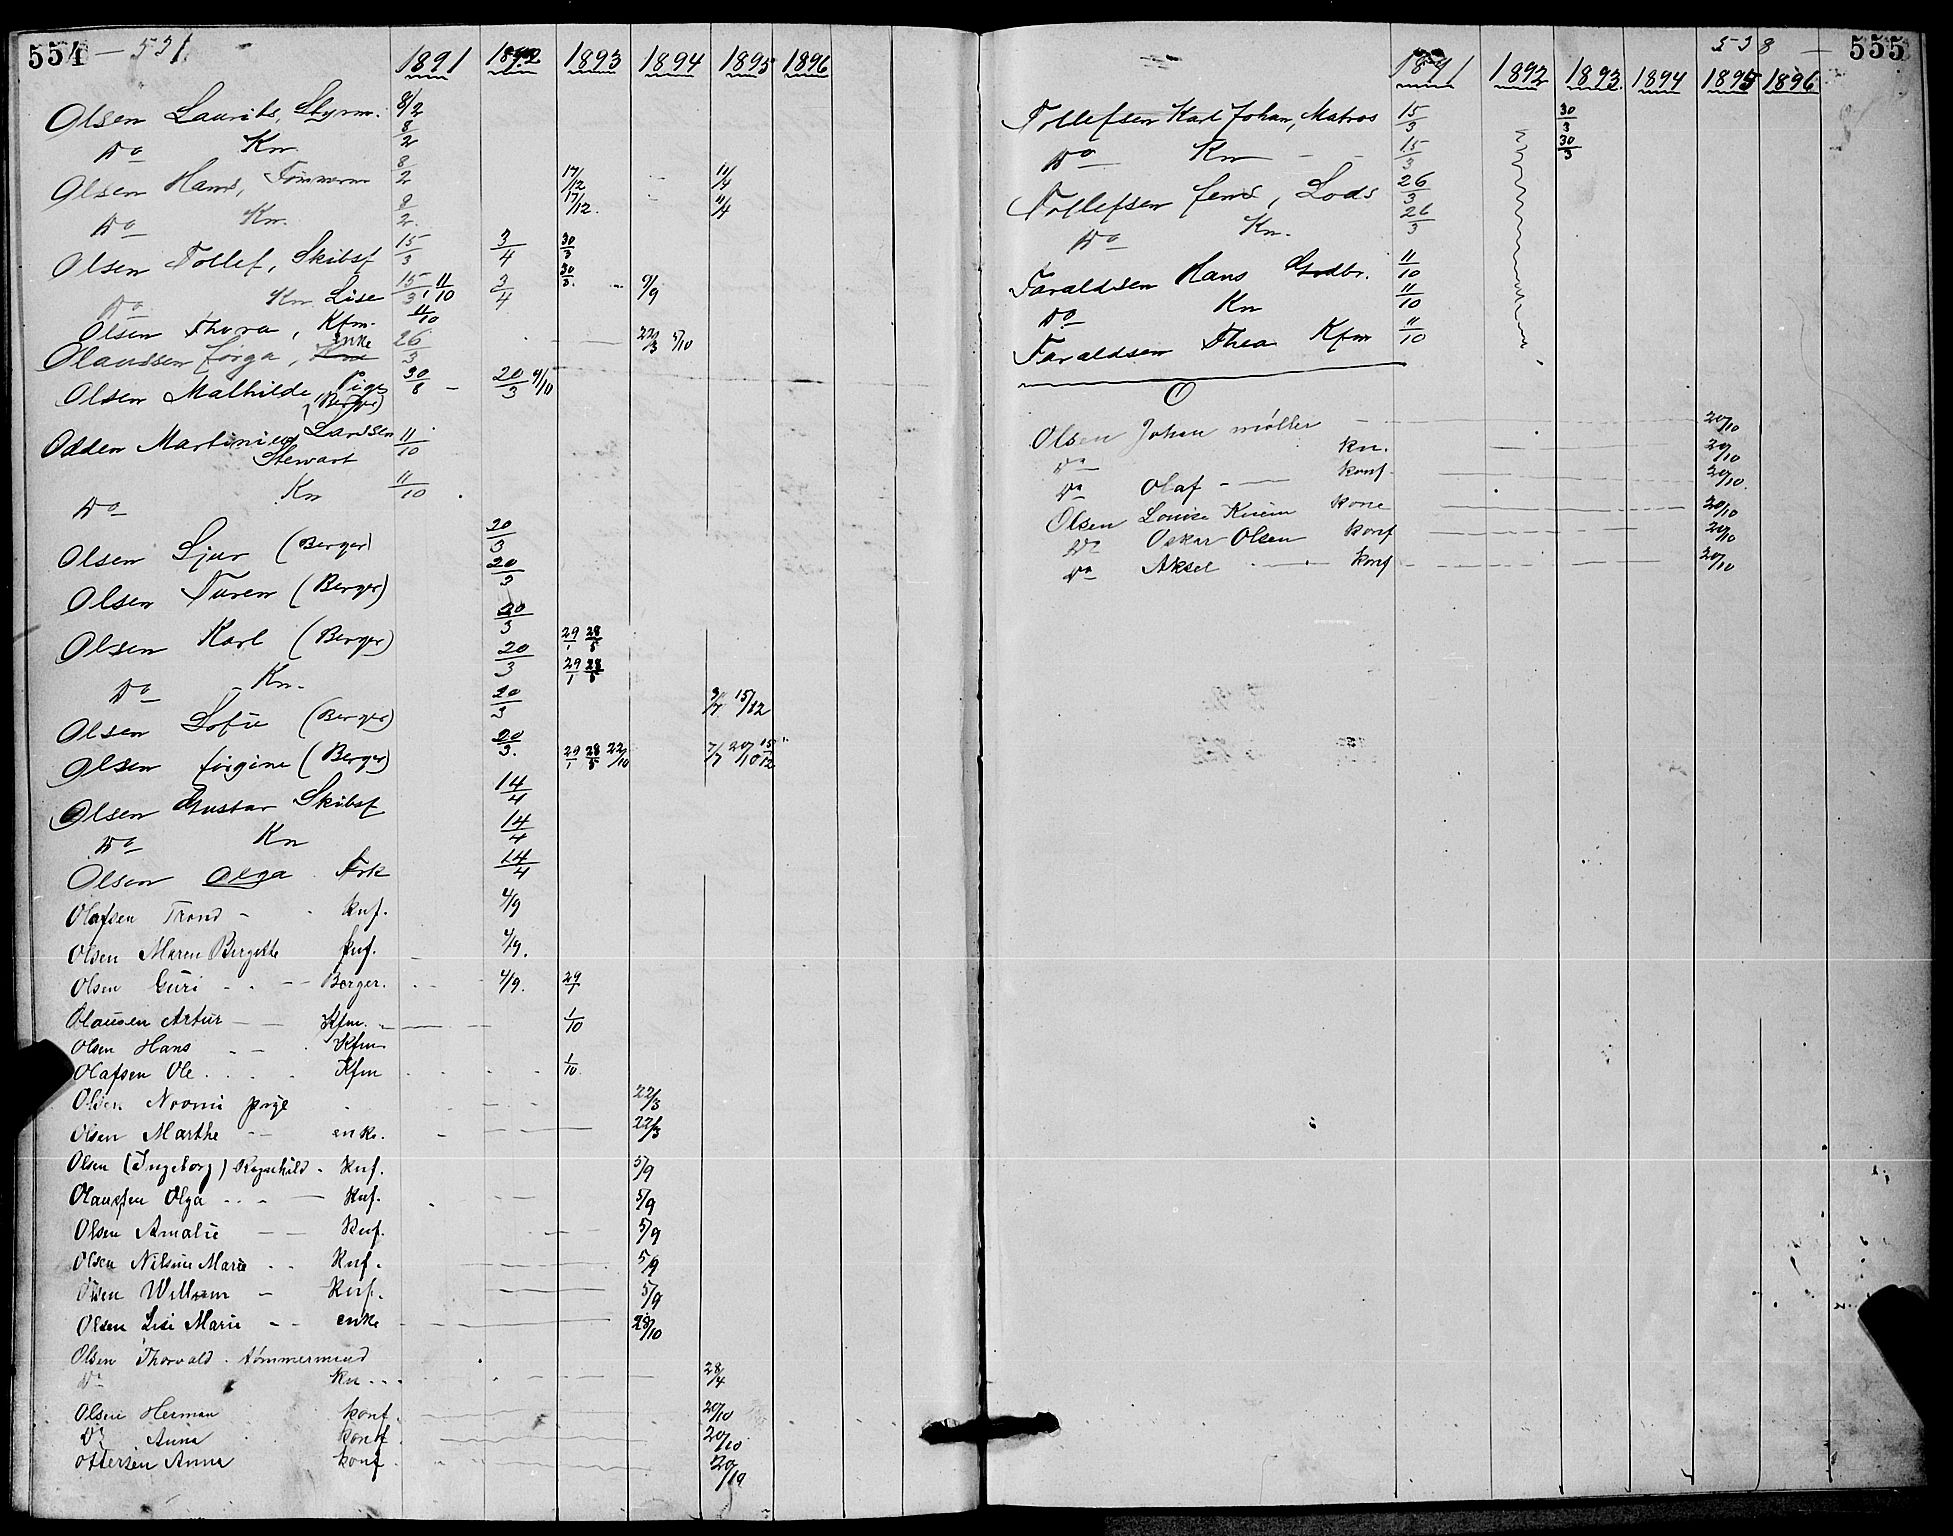 554 — 531
1891 1892 1893 1894 1895 1896
Olsen Laurits, Styrm. 8/2
Do Kn 8/2
Olsen Hans, Tømmerm 8/2 17/12 11/4
Do Kn. 8/2. 17/12. 11/4
Olsen Tollef, Skibsf 15/3 3/4 30/3
Do Kn Lise 15/3, 11/10 3/4 30/3. 9/9
Olsen Thora, Kfm. 11/10
Olaussen Jørga, enke 26/3 22/3 5/10
Olsen Mathilde, Pige (Berger) 30/8 20/3 9/10
Odden Martinius Larssen 11/10
Stewart
Do Kn 11/10
Olsen Sjur (Berger) 20/3
Olsen Turen (Berger) 20/3
Olsen Karl (Berger) 20/3 29/1 28/5
Do Kn. 20/3 29/1 28/5
Olsen Sofie (Berger) 20/3 7/7 15/12
Olsen Jørgine (Berger) 20/3. 29/1 28/5 22/10 7/7 20/10 15/12
Olsen Gustav Skibsf 14/4
Do Kn 14/4
Olsen Olga Frk 14/4
Olafsen Trond - Knf. 4/9
Olsen Maren Bergitte Knf. 4/9.
Olsen Guri - - - Berger. 4/9. 29/1
Olausen Artur — Kfm. 1/10
Olsen Hans - - Kfm
Olafsen Ole . . . Kfm 1/10
Olsen Noomi pige 22/3
Olsen Marthe - enke. 22/3
Olsen (Ingeborg) Ragnhild - Knf. 5/9
Olaussen Olga - - - Knf. 5/9
Olsen Amalie — Knf. 5/9
Olsen Nilsine Marie - - Knf. 5/9
Olsen William - Knf. 5/9
Olsen Lise Marie - - enke 28/10
Olsen Thorvald. tømmermend
Do kn - - - 28/4
Olsen Herman konf. 20/10
Do Anna konf. 20/10
Ottersen Anna konf. 20/10
538 — 555
1891 1892 1893. 1894 1895 1896
Tollefsen Karl Johan, Matros 15/3 30/3
Do Kn - - 15/3 30/3
Tollefsen Jens, Lods 26/3
Do Kn. 26/3
Taraldsen Hans Grdbr. 11/10
Do Kn 11/10
Taraldsen Thea Kfm 11/10
O
Olsen Johan møller 20/10
Do kn. 20/10
Do Olaf - — konf 20/10.
Olsen Louise kone 20/10
Do Oskar Olsen konf 20/10
Do Aksel konf 20/10